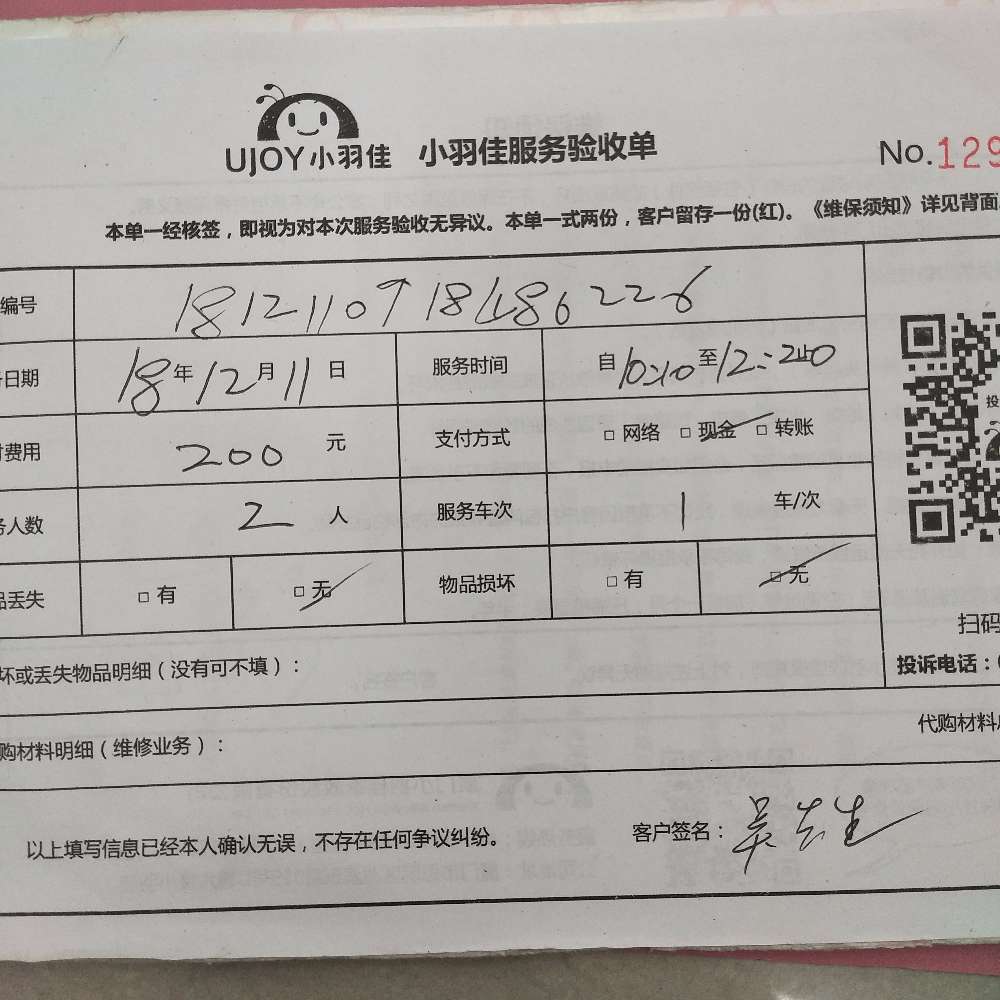 UJOY小羽佳 小羽佳服务验收单 No.129
本单一经核签，即视为对本次服务验收无异议。本单一式两份，客户留存一份(红)。《维保须知》详见背面。
编号
日期 18年12月11日 服务时间 自10:10至12:40
费用 200元 支付方式 □网络 □现金 □转账
人数 2人 服务车次 1车/次
品丢失 □有 □无 物品损坏 □有 □无
扫码
坏或丢失物品明细（没有可不填）： 投诉电话：
购材料明细（维修业务）： 代购材料
以上填写信息已经本人确认无误，不存在任何争议纠纷。 客户签名：吴先生